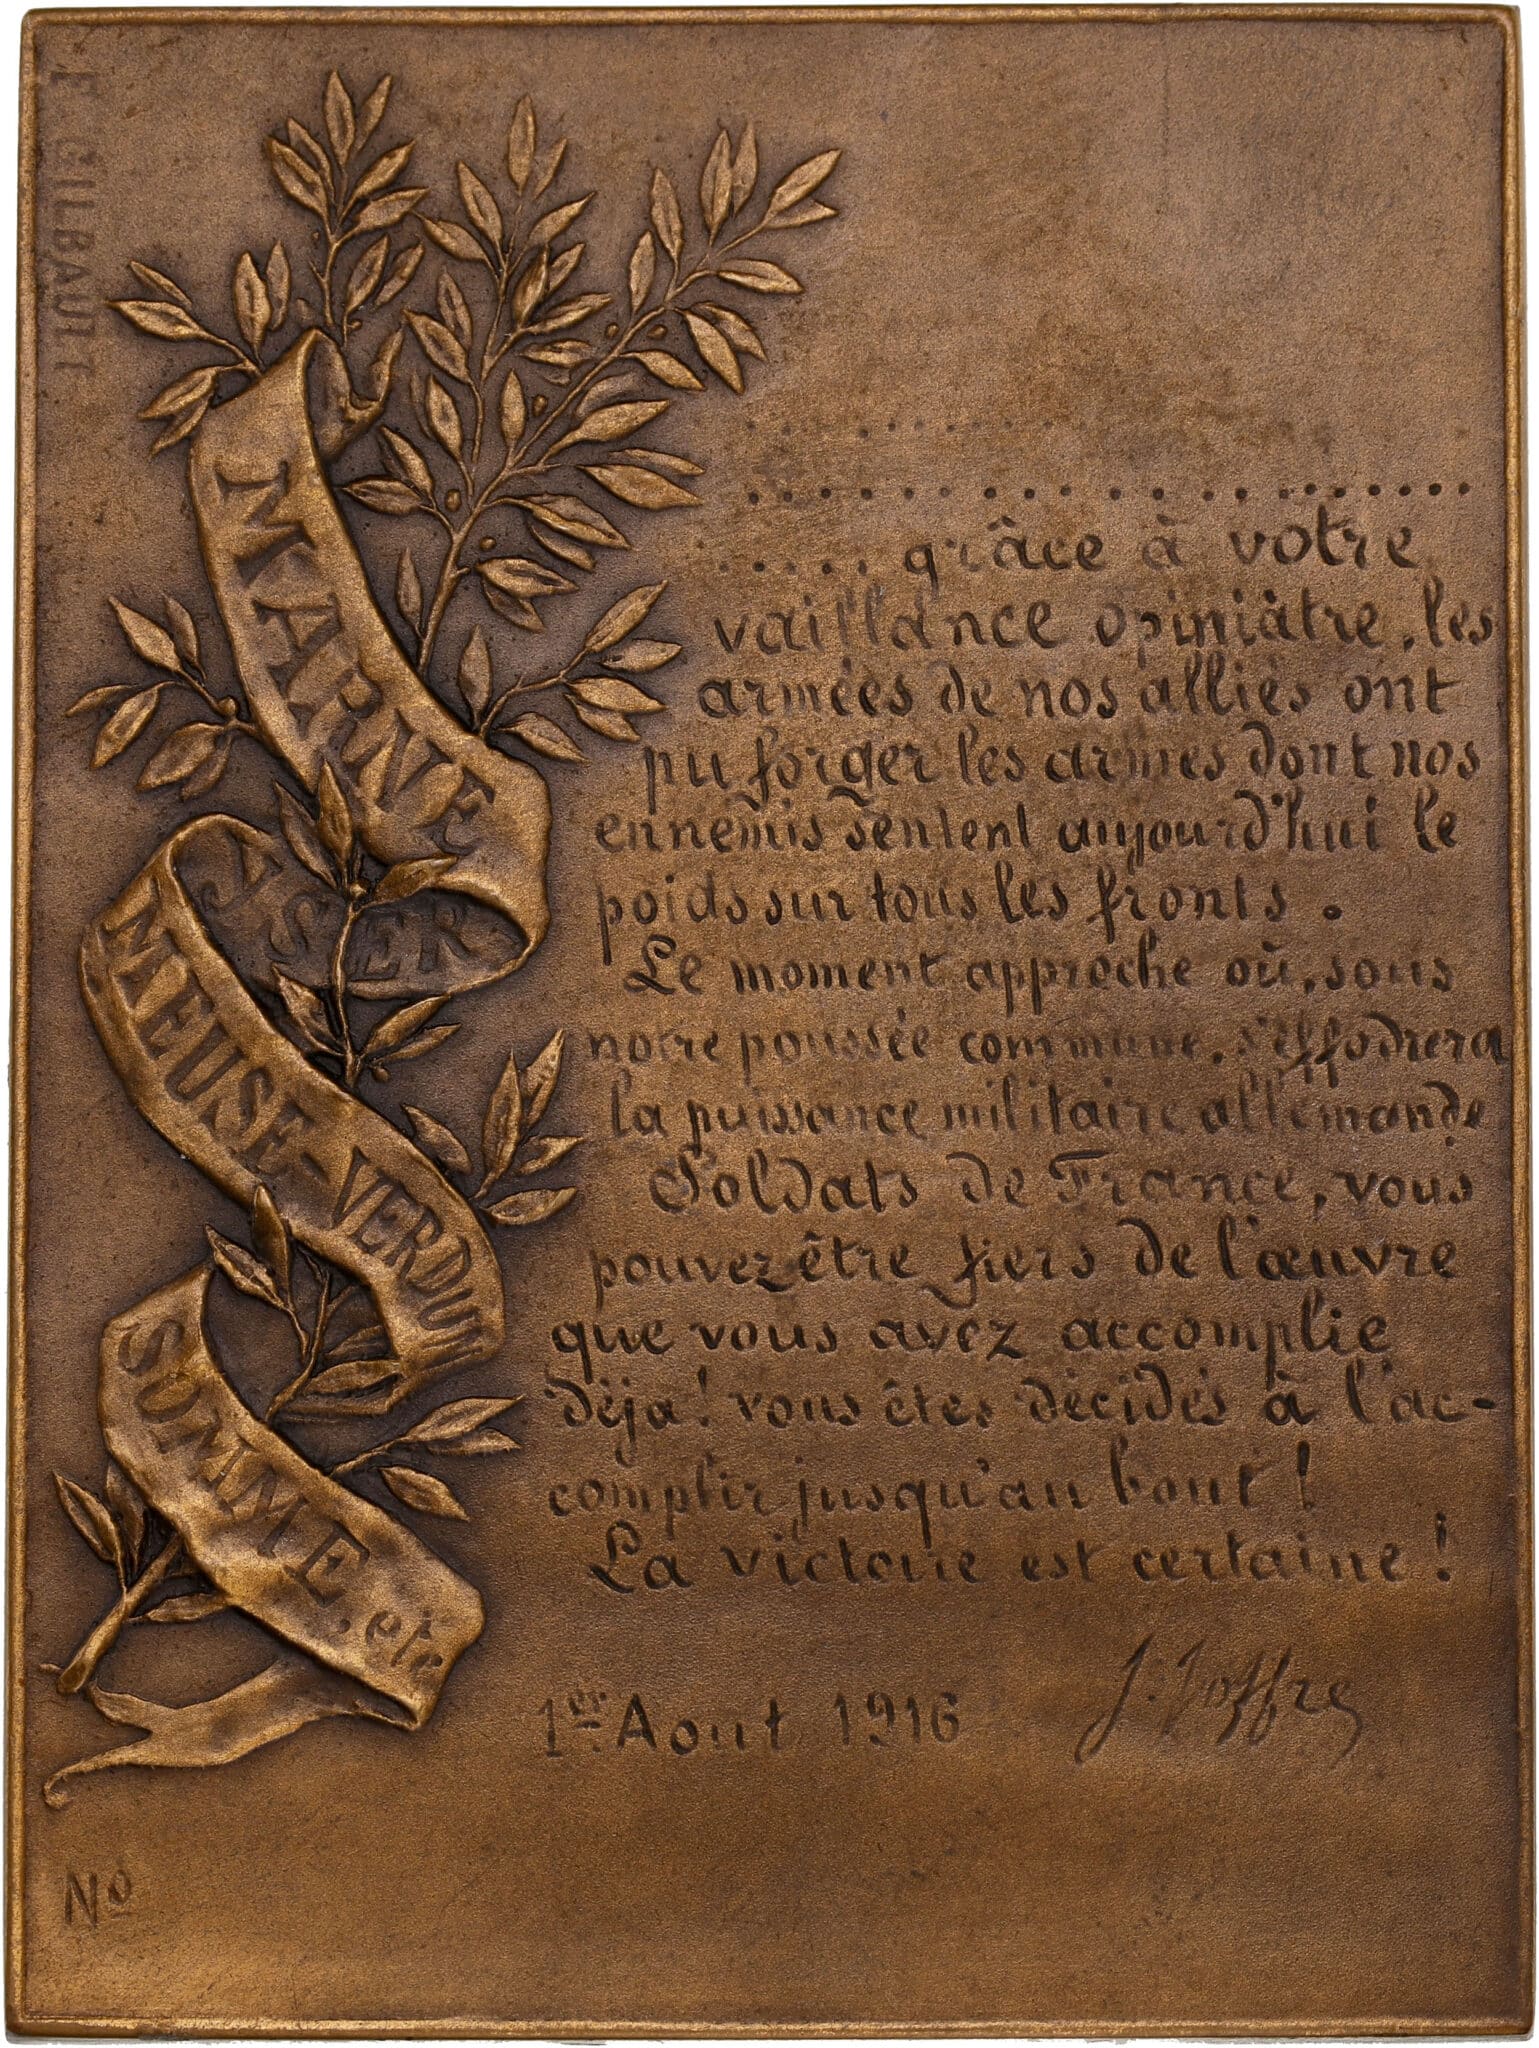 F. GILBAULT
MARNE
YSER
MEUSE-VERDUN
SOMME, etc
. . . . . . . . . .
. . . . . . . . . . . . . . . . . . . .
. . . . . . grâce à votre
vaillance opiniâtre, les
armées de nos alliés ont
pu forger les armes dont nos
ennemis sentent aujourd'hui le
poids sur tous les fronts.
Le moment approche où, sous
notre poussée commune, s'effodrera
la puissance militaire allemande
Soldats de France, vous
pouvez être fiers de l'œuvre
que vous avez accomplie
déja! vous êtes décidés à l'ac-
complir jusqu'au bout!
La victoire est certaine!
1er Aout 1916 J. Joffre
No